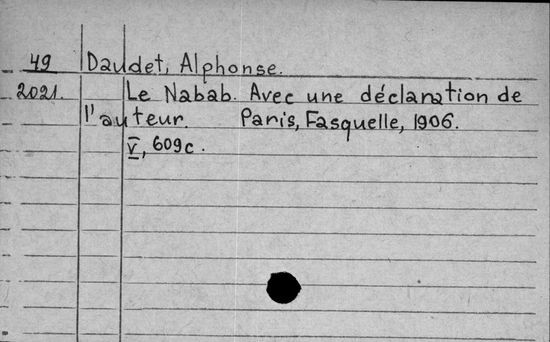 49 Daudet, Alphonse.
2021. Le Nabab. Avec une déclaration de
l'auteur. Paris, Fasquelle, 1906.
V, 609c.